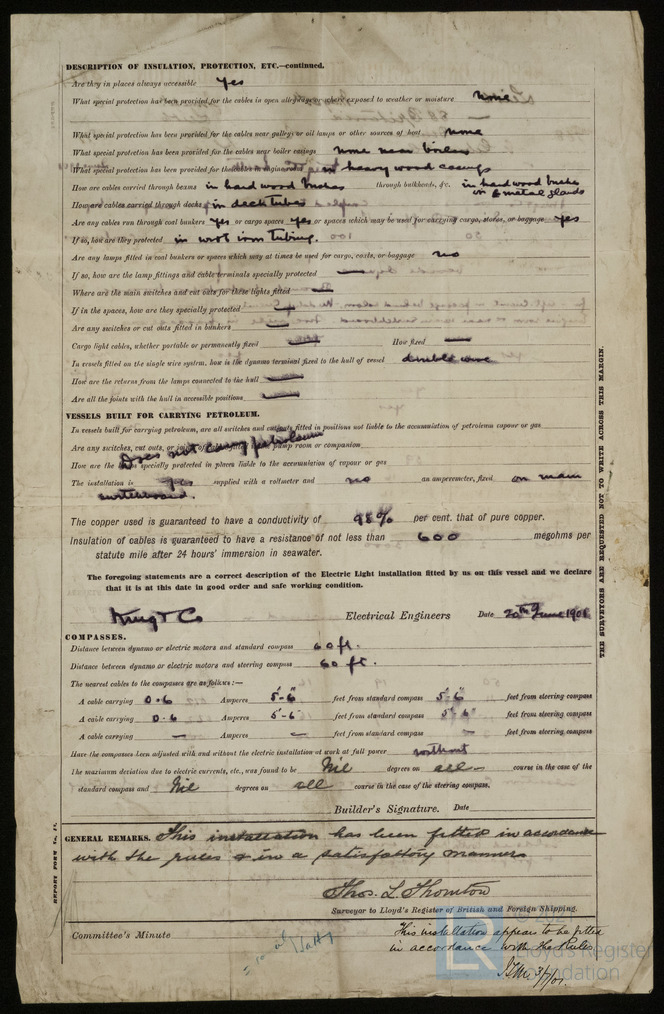 DESCRIPTION OF INSULATION, PROTECTION, ETC.—continued.
Are they in places always accessible yes
What special protection has been provided for the cables in open alleyways or where exposed to weather or moisture none
What special protection has been provided for the cables near galleys or oil lamps or other sources of heat none
What special protection has been provided for the cables near boiler casings none near boilers
What special protection has been provided for the cables in engine room in heavy wood casings
How are cables carried through beams in hard wood bushes through bulkheads, &c. in hard wood bushes
or in metal glands
How are cables carried through decks in deck tubes
Are any cables run through coal bunkers yes or cargo spaces yes or spaces which may be used for carrying cargo, stores, or baggage yes
If so, how are they protected in wrot iron tubing.
Are any lamps fitted in coal bunkers or spaces which may at times be used for cargo, coals, or baggage no
If so, how are the lamp fittings and cable terminals specially protected —
Where are the main switches and cut outs for these lights fitted —
If in the spaces, how are they specially protected —
Are any switches or cut outs fitted in bunkers —
Cargo light cables, whether portable or permanently fixed — How fixed —
In vessels fitted on the single wire system, how is the dynamo terminal fixed to the hull of vessel double wire
How are the returns from the lamps connected to the hull —
Are all the joints with the hull in accessible positions —
VESSELS BUILT FOR CARRYING PETROLEUM.
In vessels built for carrying petroleum, are all switches and cut outs fitted in positions not liable to the accumulation of petroleum vapour or gas
Are any switches, cut outs, or joints of cables fitted in pump room or companion
Does not carry petroleum
How are the lamps specially protected in places liable to the accumulation of vapour or gas
The installation is yes supplied with a voltmeter and no an amperemeter, fixed on main
switchboard.
The copper used is guaranteed to have a conductivity of 98% per cent. that of pure copper.
Insulation of cables is guaranteed to have a resistance of not less than 600 megohms per
statute mile after 24 hours' immersion in seawater.
The foregoing statements are a correct description of the Electric Light installation fitted by us on this vessel and we declare
that it is at this date in good order and safe working condition.
King & Co Electrical Engineers Date 20th June 1901
COMPASSES.
Distance between dynamo or electric motors and standard compass 60 ft.
Distance between dynamo or electric motors and steering compass 60 ft.
The nearest cables to the compasses are as follows:—
A cable carrying 0.6 Amperes 5'-6" feet from standard compass 5'-6" feet from steering compass
A cable carrying 0.6 Amperes 5'-6" feet from standard compass 5'6" feet from steering compass
A cable carrying — Amperes — feet from standard compass — feet from steering compass
Have the compasses been adjusted with and without the electric installation at work at full power without
The maximum deviation due to electric currents, etc., was found to be Nil degrees on all course in the case of the
standard compass and Nil degrees on all course in the case of the steering compass.
Builder's Signature. Date
GENERAL REMARKS. This installation has been fitted in accordance
with the rules & in a satisfactory manner
Thos. L. Thornton
Surveyor to Lloyd's Register of British and Foreign Shipping.
Committee's Minute
This installation appears to be fitted
in accordance with the Rules
3/7/01.
THE SURVEYORS ARE REQUESTED NOT TO WRITE ACROSS THIS MARGIN.
REPORT FORM No. 11.
LR
© 2021
Lloyd's Register
Foundation